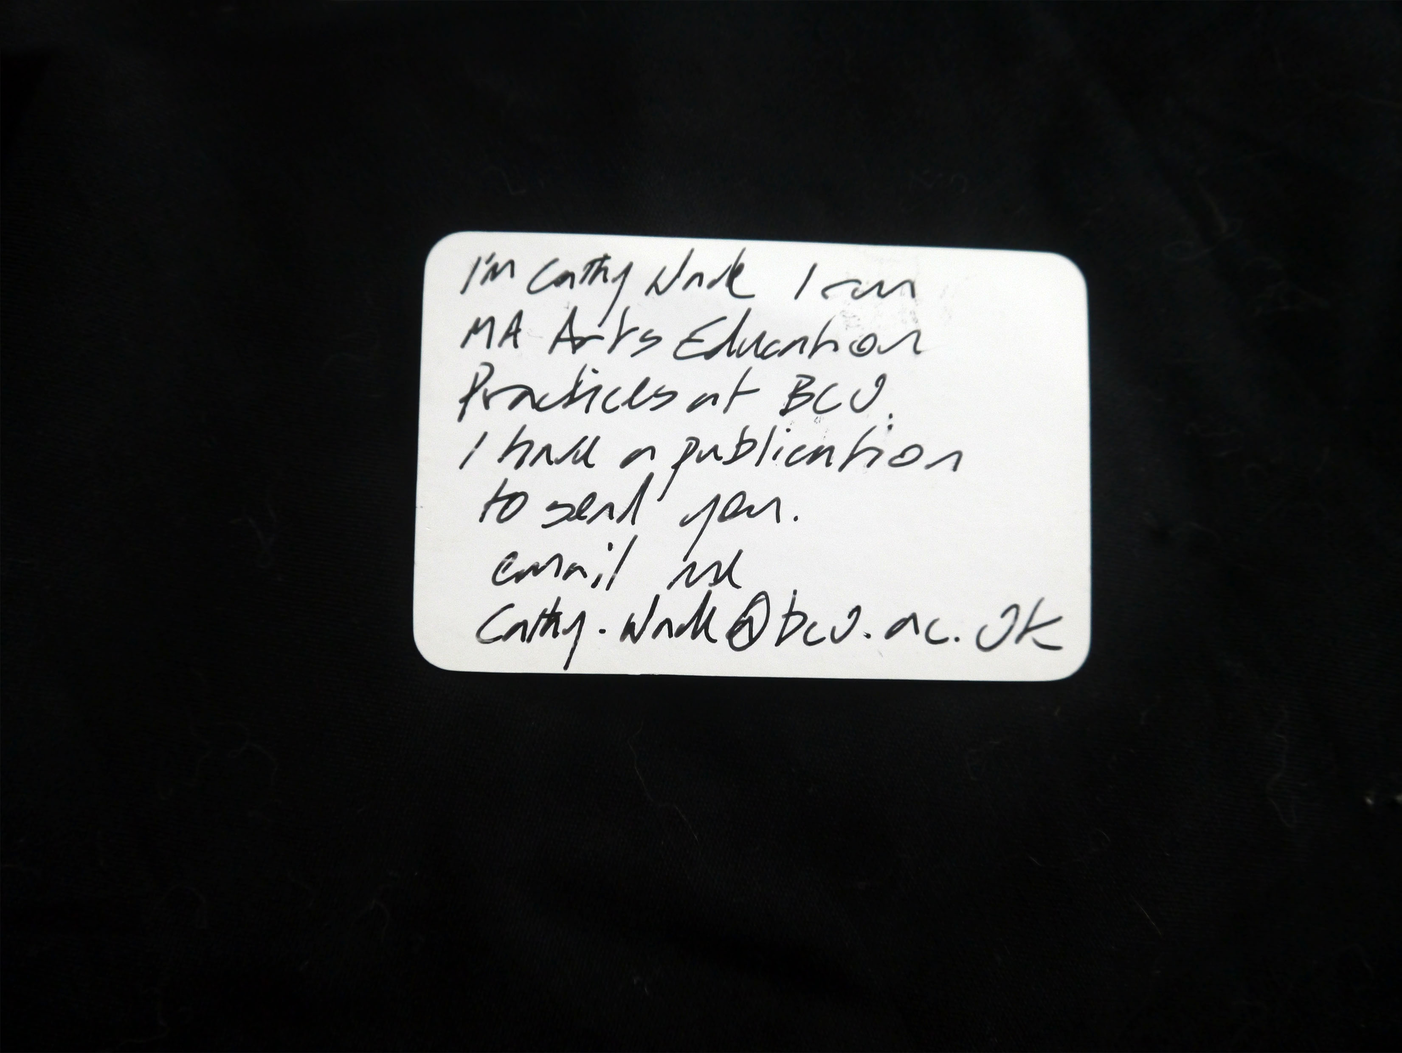 I'm Cathy Wade I run
MA Arts Education
Practices at BCU.
I have a publication
to send you.
email me
Cathy.Wade@bcu.ac.uk